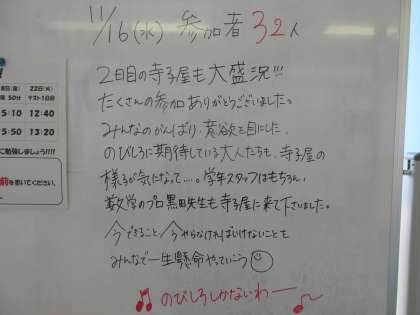 11/16(水) 参加者 32人
2日目の寺子屋も大盛況!!!
たくさんの参加ありがとうございました。
みんなのがんばり、意欲を目にした、
のびしろに期待している大人たちも、寺子屋の
様子が気になって…。学年スタッフはもちろん、
数学のプロ黒田先生も寺子屋に来て下さいました。
今できること、今やらなければいけないことを
みんなで一生懸命やっていこう
のびしろしかないわー
22日(火)
50分
テスト1日目
5:10
12:40
5:50
13:20
に勉強しましょう!!!!
前を書いてください。